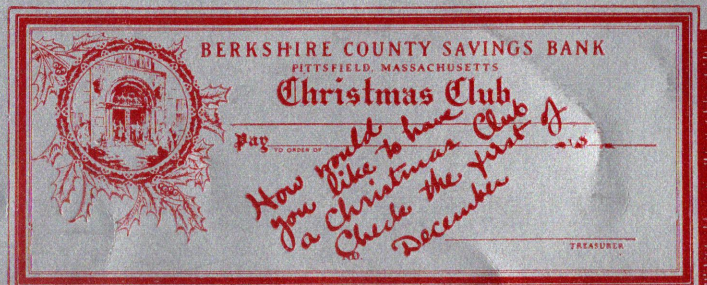 BERKSHIRE COUNTY SAVINGS BANK
PITTSFIELD, MASSACHUSETTS
Christmas Club
Pay TO ORDER OF
How would
you like to have
a Christmas Club
Check the first of
December
NO.
TREASURER